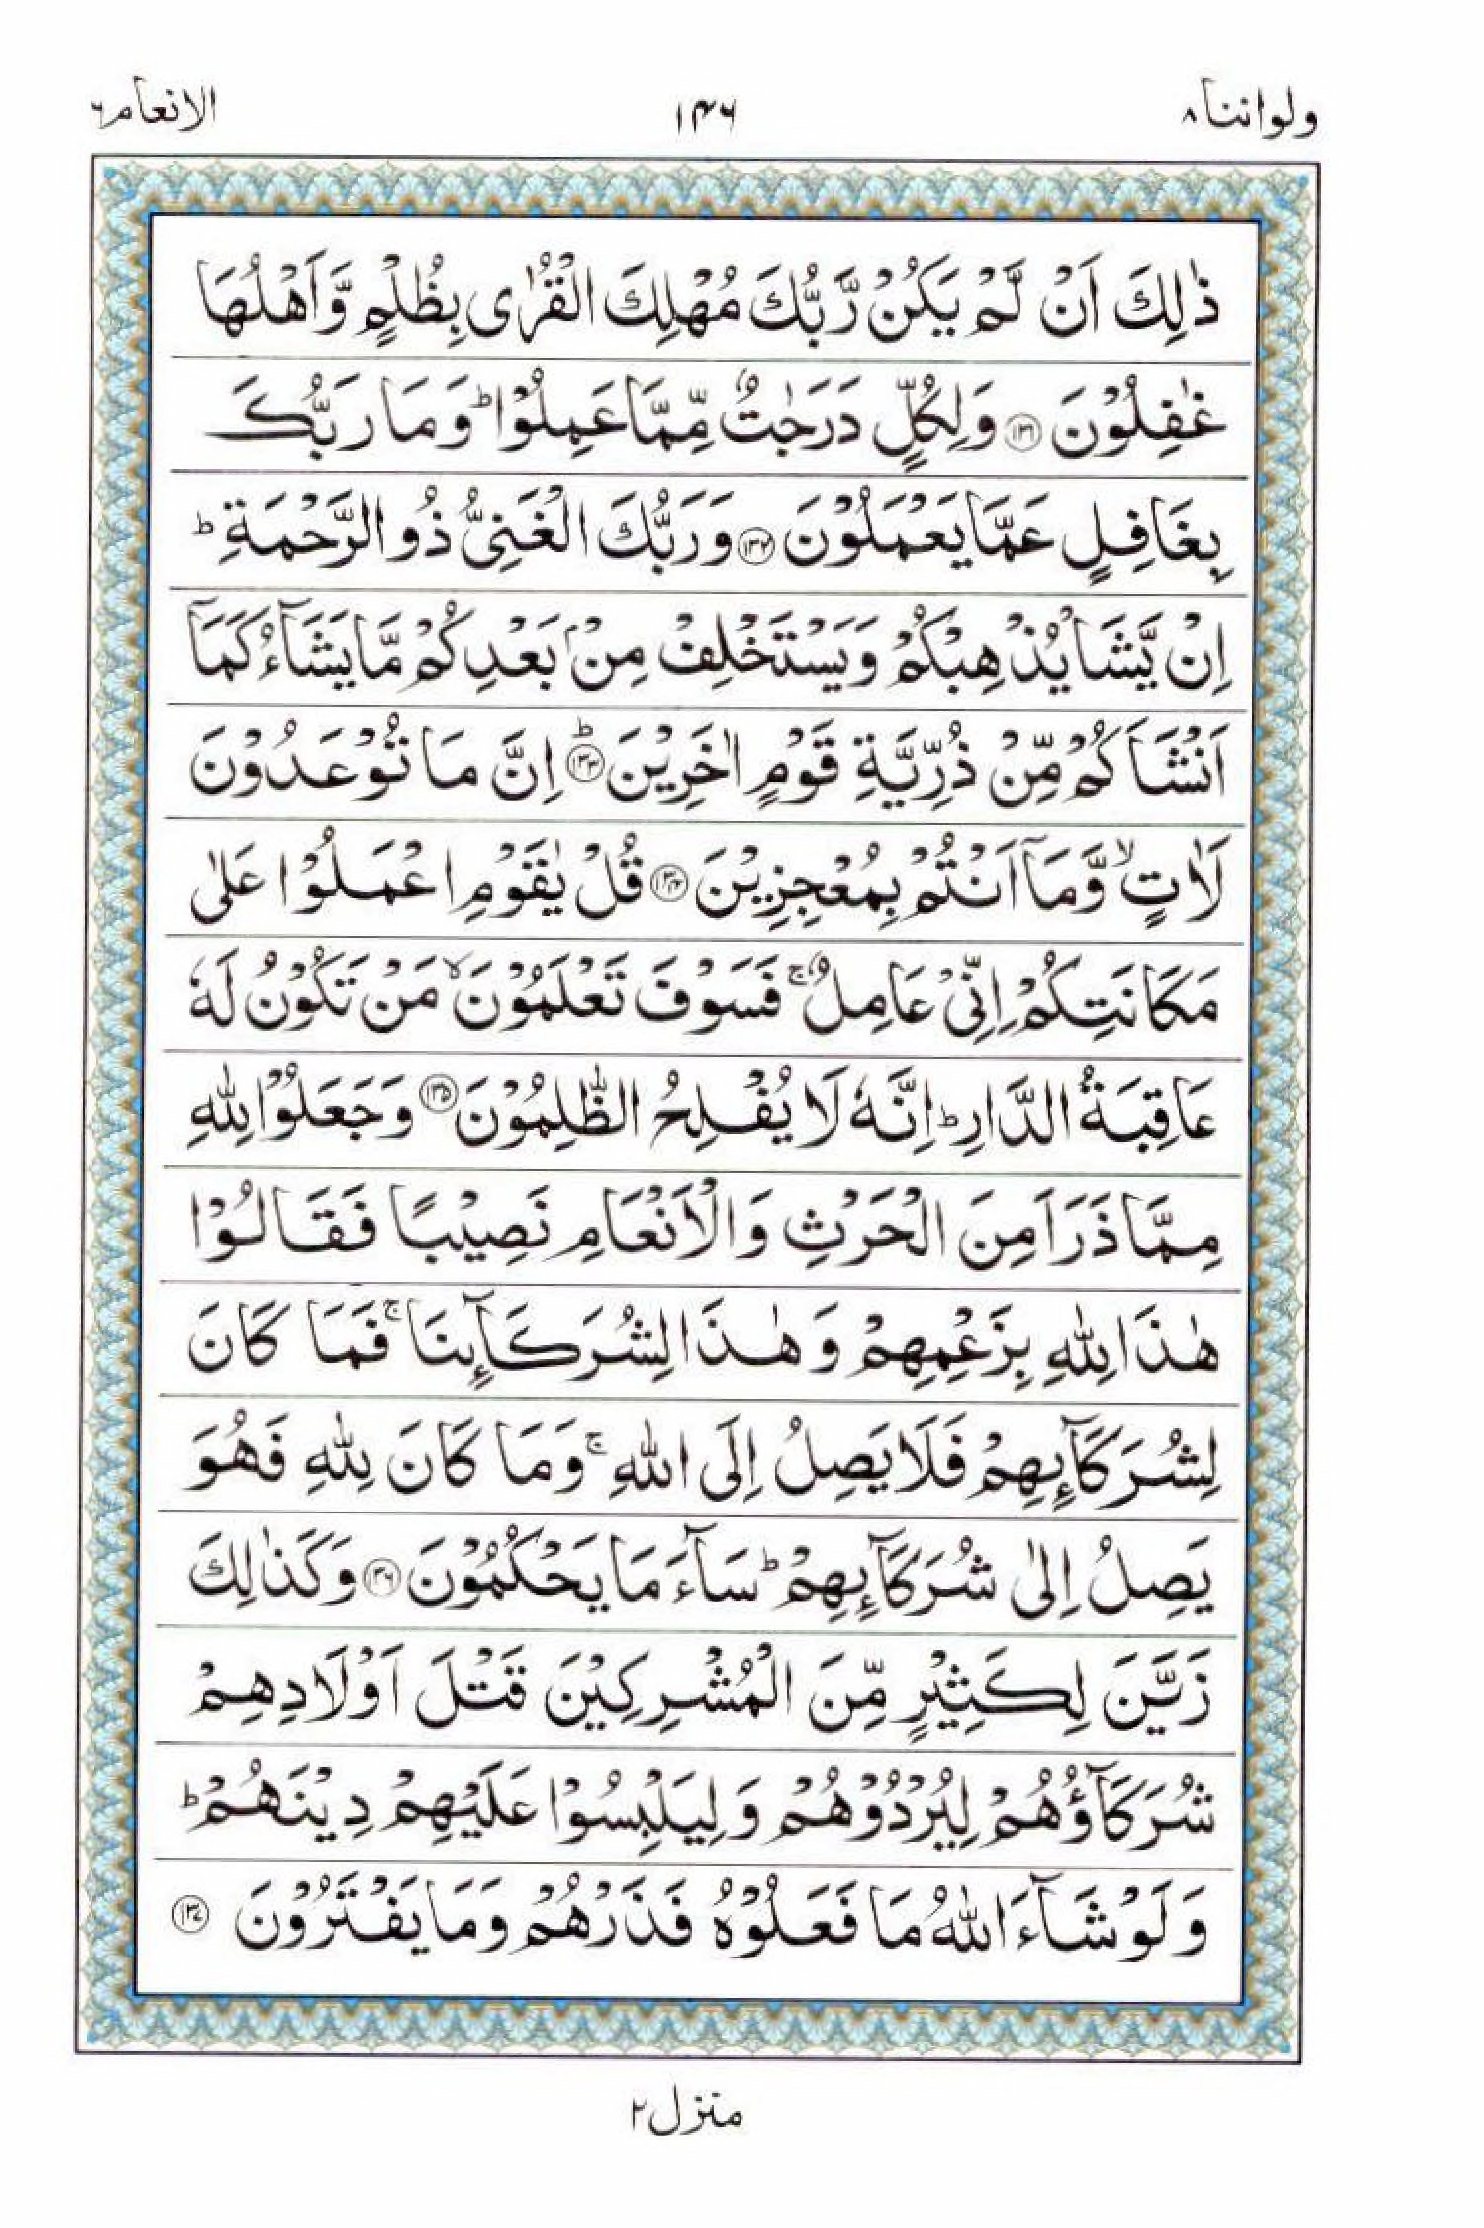 ولواننا ٨ ١٤٦ الانعام ٦
ذٰلِكَ اَنْ لَّمْ يَكُنْ رَّبُّكَ مُهْلِكَ الْقُرٰى بِظُلْمٍ وَّاَهْلُهَا
غٰفِلُوْنَ ﴿١٣١﴾ وَلِكُلٍّ دَرَجٰتٌ مِّمَّا عَمِلُوْا ؕ وَمَا رَبُّكَ
بِغَافِلٍ عَمَّا يَعْمَلُوْنَ ﴿١٣٢﴾ وَرَبُّكَ الْغَنِىُّ ذُو الرَّحْمَةِ ؕ
اِنْ يَّشَاْ يُذْهِبْكُمْ وَيَسْتَخْلِفْ مِنْۢ بَعْدِكُمْ مَّا يَشَآءُ كَمَاۤ
اَنْشَاَكُمْ مِّنْ ذُرِّيَّةِ قَوْمٍ اٰخَرِيْنَ ؕ ﴿١٣٣﴾ اِنَّ مَا تُوْعَدُوْنَ
لَاٰتٍ ۙ وَّمَاۤ اَنْتُمْ بِمُعْجِزِيْنَ ﴿١٣٤﴾ قُلْ يٰقَوْمِ اعْمَلُوْا عَلٰى
مَكَانَتِكُمْ اِنِّىْ عَامِلٌ ۚ فَسَوْفَ تَعْلَمُوْنَ ۙ مَنْ تَكُوْنُ لَهٗ
عَاقِبَةُ الدَّارِ ؕ اِنَّهٗ لَا يُفْلِحُ الظّٰلِمُوْنَ ﴿١٣٥﴾ وَجَعَلُوْا لِلّٰهِ
مِمَّا ذَرَاَ مِنَ الْحَرْثِ وَالْاَنْعَامِ نَصِيْبًا فَقَالُوْا
هٰذَا لِلّٰهِ بِزَعْمِهِمْ وَهٰذَا لِشُرَكَآئِنَا ۚ فَمَا كَانَ
لِشُرَكَآئِهِمْ فَلَا يَصِلُ اِلَى اللّٰهِ ۚ وَمَا كَانَ لِلّٰهِ فَهُوَ
يَصِلُ اِلٰى شُرَكَآئِهِمْ ؕ سَآءَ مَا يَحْكُمُوْنَ ﴿١٣٦﴾ وَكَذٰلِكَ
زَيَّنَ لِكَثِيْرٍ مِّنَ الْمُشْرِكِيْنَ قَتْلَ اَوْلَادِهِمْ
شُرَكَآؤُهُمْ لِيُرْدُوْهُمْ وَلِيَلْبِسُوْا عَلَيْهِمْ دِيْنَهُمْ ؕ
وَلَوْ شَآءَ اللّٰهُ مَا فَعَلُوْهُ فَذَرْهُمْ وَمَا يَفْتَرُوْنَ ﴿١٣٧﴾
منزل ٢